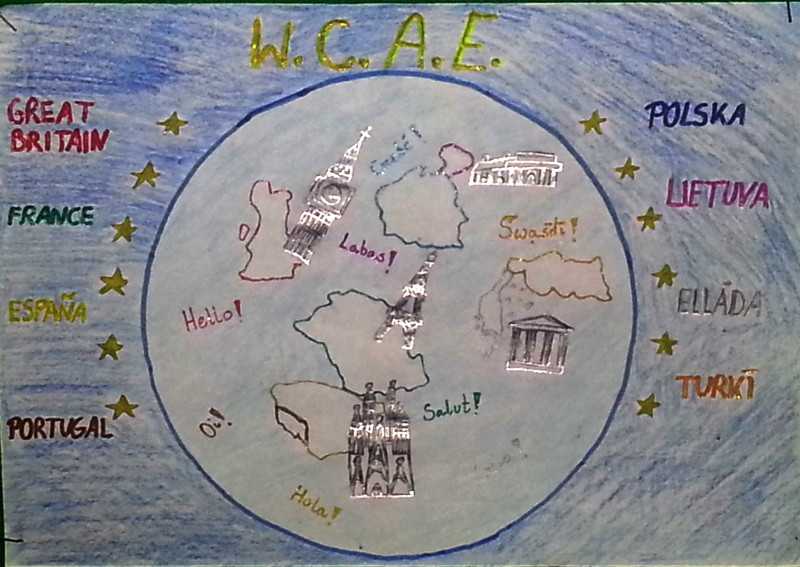 W.C.A.E.
GREAT
BRITAIN
FRANCE
ESPAÑA
PORTUGAL
POLSKA
LIETUVA
ELLÁDA
TURKĪ
Cześć!
Labas!
Hello!
Salut!
Oi!
Hola!